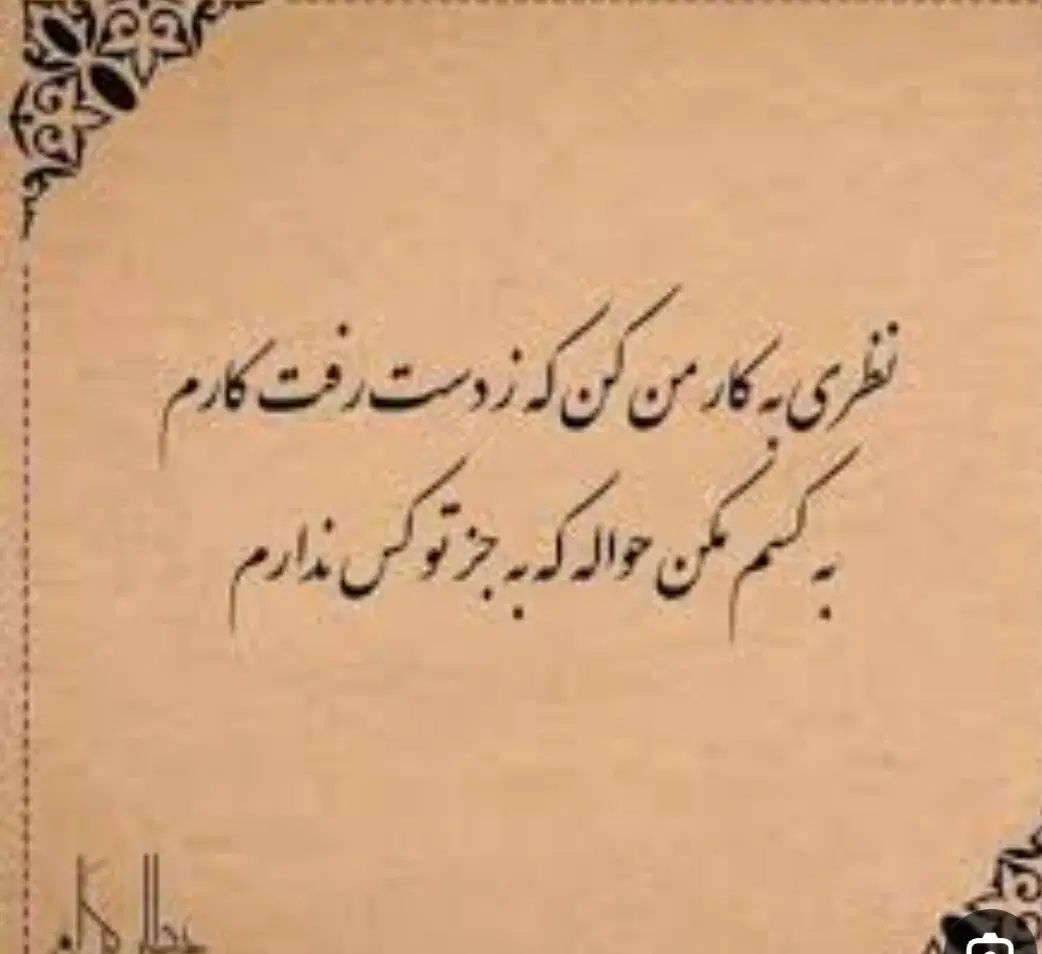 نظری به کار من کن که ز دست رفت کارم
به کسم مکن حواله که به جز تو کس ندارم